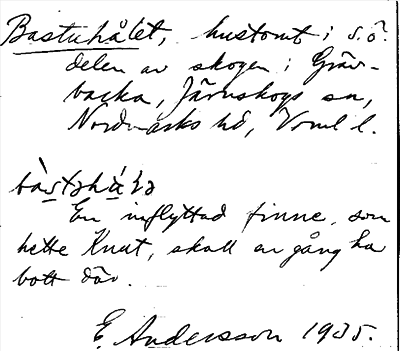 Bastuhålet, hustomt i s.ö.
delen av skogen i Gräv-
backa, Järnskogs sn,
Nordmarks hd, Vrml l.
En inflyttad finne, som
hette Knut, skall en gång ha
bott där.
E. Andersson 1935.